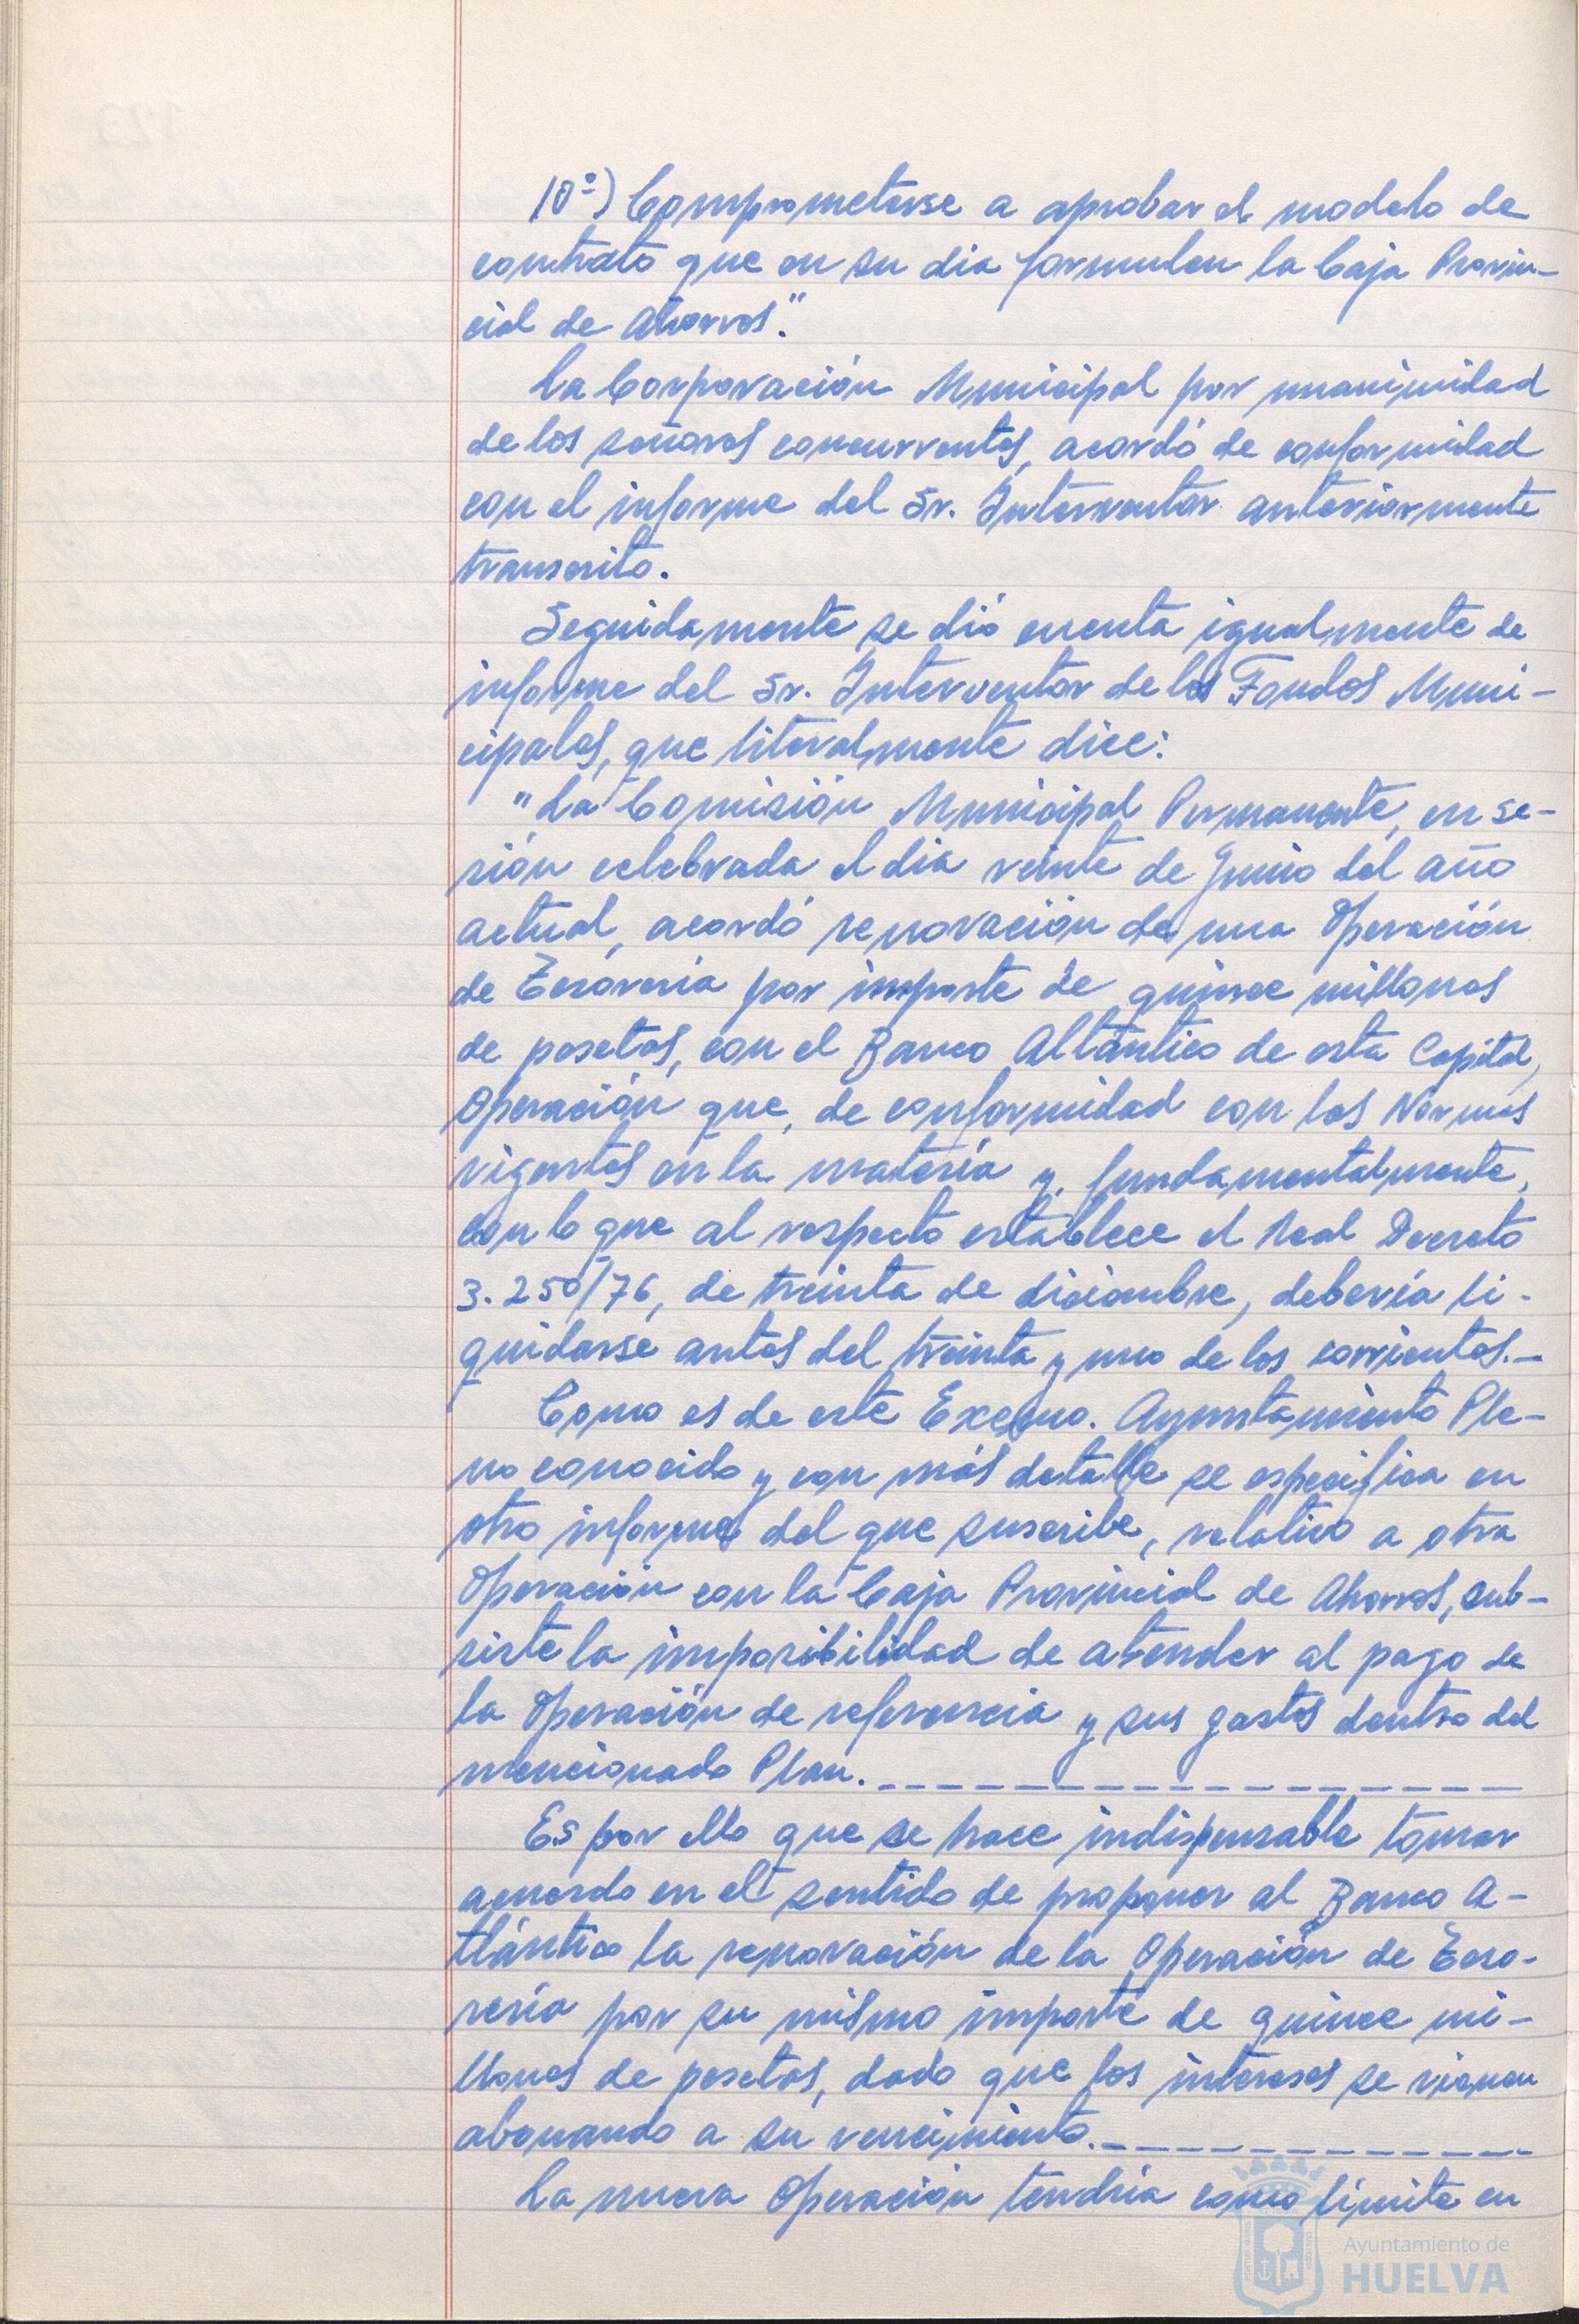 10º) Comprometerse a aprobar el modelo de
contrato que en su dia formulen la Caja Provin-
cial de Ahorros."
La Corporación Municipal por unanimidad
de los señores concurrentes, acordó de conformidad
con el informe del Sr. Interventor anteriormente
transcrito.
Seguidamente se dió cuenta igualmente de
informe del Sr. Interventor de los Fondos Muni-
cipales, que literalmente dice:
"La Comisión Municipal Permanente, en se-
sión celebrada el dia veinte de Junio del año
actual, acordó renovación de una Operación
de Tesorería por importe de quince millones
de pesetas, con el Banco Altántico de esta Capital,
Operación que, de conformidad con las Normas
vigentes en la materia y, fundamentalmente,
con lo que al respecto establece el Real Decreto
3.250/76, de treinta de diciembre, debería li-
quidarse antes del treinta y uno de los corrientes.-
Como es de este Excmo. Ayuntamiento Ple-
no conocido y con más detalle se especifica en
otro informe del que suscribe, relativo a otra
Operación con la Caja Provincial de Ahorros, sub-
siste la imposibilidad de atender al pago de
la Operación de referencia y sus gastos dentro del
mencionado Plan.
Es por ello que se hace indispensable tomar
acuerdo en el sentido de proponer al Banco A-
tlántico la renovación de la Operación de Teso-
rería por su mismo importe de quince mi-
llones de pesetas, dado que los intereses se vienen
abonando a su vencimiento.
La nueva Operación tendría como límite en
Ayuntamiento de
HUELVA